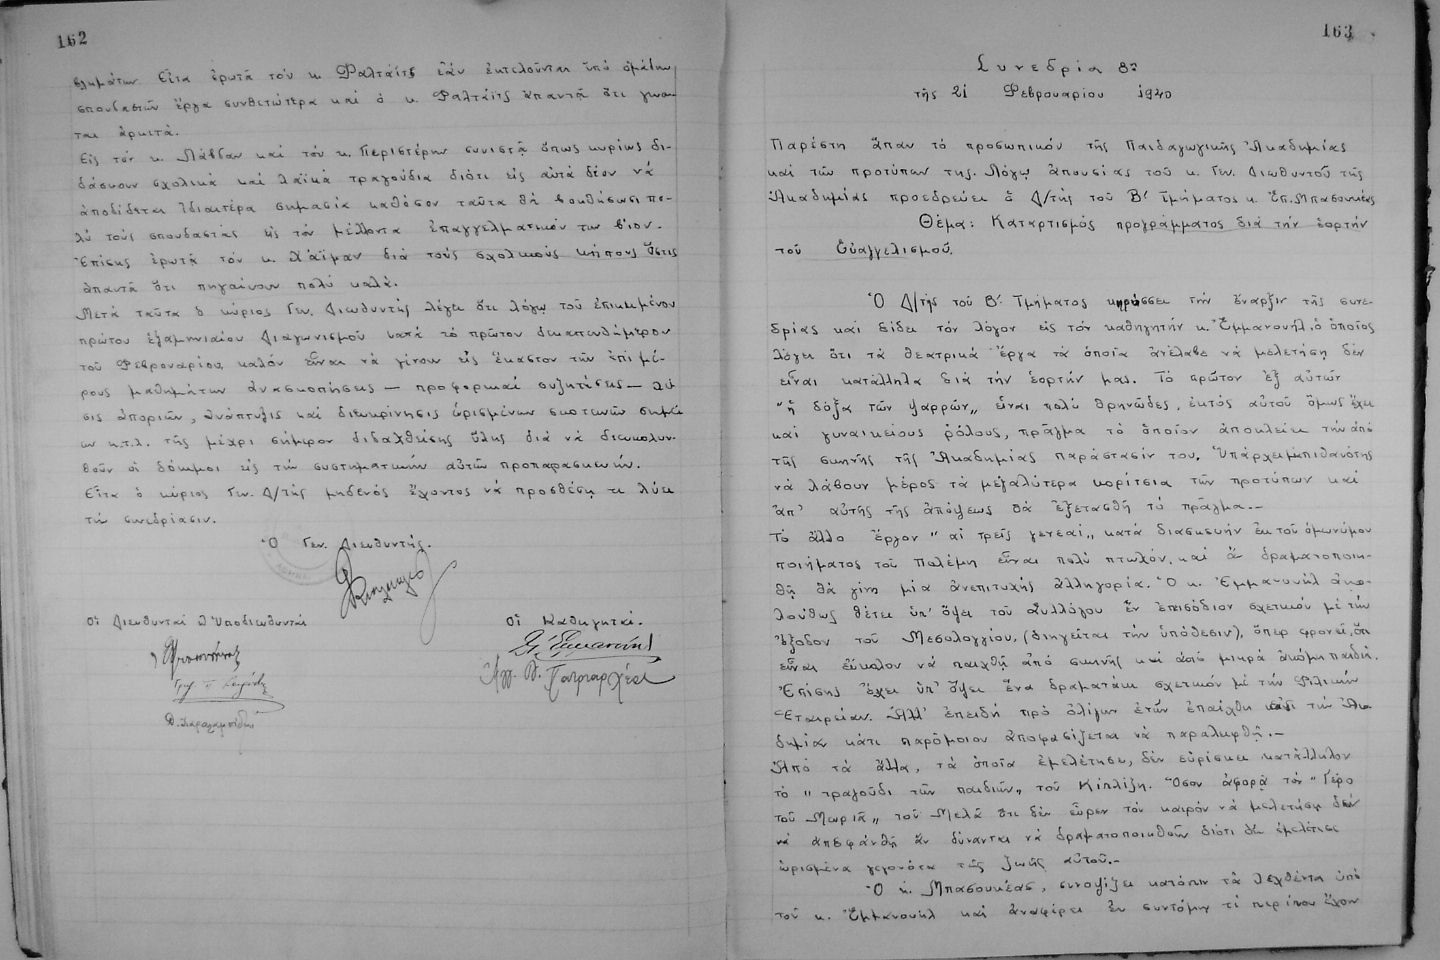 162
Εἶτα ἐρωτᾷ τόν κ. Φαλτάϊτς ἐάν ἐκτελοῦνται ὑπό ὁμάδων
σπουδαστῶν ἔργα συνθετώτερα καί ὁ κ. Φαλτάϊτς ἀπαντᾷ ὅτι γίνον-
ται ἀρκετά.
Εἰς τόν κ. καί τόν κ. Περιστέρην συνιστᾷ ὅπως κυρίως δι-
δάσκουν σχολικά καί λαϊκά τραγούδια διότι εἰς αὐτά δέον νά
ἀποδίδεται ἰδιαιτέρα σημασία καθόσον ταῦτα θά βοηθήσωσι πο-
λύ τούς σπουδαστάς εἰς τόν μέλλοντα ἐπαγγελματικόν των βίον.
Ἐπίσης ἐρωτᾷ τόν κ. Χάϊμαν διά τούς σχολικούς κήπους ὅστις
ἀπαντᾷ ὅτι πηγαίνουν πολύ καλά.
Μετά ταῦτα ὁ κύριος Γεν. Διευθυντής λέγει ὅτι λόγῳ τοῦ ἐπικειμένου
πρώτου ἑξαμηνιαίου διαγωνισμοῦ κατά τό πρῶτον δεκαπενθήμερον
τοῦ Φεβρουαρίου, καλόν εἶναι νά γίνουν εἰς ἕκαστον τῶν ἐπί μέ-
ρους μαθημάτων ἀνασκοπήσεις — προφορικαί συζητήσεις — λύ
σις ἀποριῶν, ἀνάπτυξις καί διευκρίνησις ὡρισμένων σκοτεινῶν σημεί
ων κ.τ.λ. τῆς μέχρι σήμερον διδαχθείσης ὕλης διά νά διευκολυν-
θοῦν οἱ δόκιμοι εἰς τήν συστηματικήν αὐτῶν προπαρασκευήν.
Εἶτα ὁ κύριος Γεν. Δ/τής μηδενός ἔχοντος νά προσθέσῃ τι λύει
τήν συνεδρίασιν.
Ὁ Γεν. Διευθυντής.
Οἱ Διευθυνταί & Ὑποδιευθυνταί
Οἱ Καθηγηταί.
163
Συνεδρία 8η
τῆς 21 Φεβρουαρίου 1940
Παρέστη ἅπαν τό προσωπικόν τῆς Παιδαγωγικῆς Ἀκαδημίας
καί τῶν προτύπων της. Λόγῳ ἀπουσίας τοῦ κ. Γεν. Διευθυντοῦ τῆς
Ἀκαδημίας προεδρεύει ὁ Δ/τής τοῦ Β' Τμήματος κ. Ἐπ. Μπασουκέας
Θέμα: Καταρτισμός προγράμματος διά τήν ἑορτήν
τοῦ Εὐαγγελισμοῦ.
Ὁ Δ/τής τοῦ Β' Τμήματος κηρύσσει τήν ἔναρξιν τῆς συνε-
δρίας καί δίδει τόν λόγον εἰς τόν καθηγητήν κ. Ἐμμανουήλ, ὁ ὁποῖος
λέγει ὅτι τά θεατρικά ἔργα τά ὁποῖα ἀνέλαβε νά μελετήσῃ δέν
εἶναι κατάλληλα διά τήν ἑορτήν μας. Τό πρῶτον ἐξ αὐτῶν
"ἡ δόξα τῶν Ψαρρῶν„ εἶναι πολύ θρηνῶδες, ἐκτός αὐτοῦ ὅμως ἔχει
καί γυναικείους ρόλους, πρᾶγμα τό ὁποῖον ἀποκλείει τήν ἀπό
τῆς σκηνῆς τῆς Ἀκαδημίας παράστασίν του. Ὑπάρχει πιθανότης
νά λάβουν μέρος τά μεγαλύτερα κορίτσια τῶν προτύπων καί
ἀπ' αὐτῆς τῆς ἀπόψεως θά ἐξετασθῇ τό πρᾶγμα.—
Τό ἄλλο ἔργον "αἱ τρεῖς γενεαί„ κατά διασκευήν ἐκ τοῦ ὁμωνύμου
ποιήματος τοῦ Πολέμη εἶναι πολύ πτωχόν, καί ἄν δραματοποιη-
θῇ θά γίνῃ μία ἀνεπιτυχής ἀλληγορία. Ὁ κ. Ἐμμανουήλ ἀκο-
λούθως θέτει ὑπ' ὄψει τοῦ Συλλόγου ἕν ἐπεισόδιον σχετικόν μέ τήν
ἔξοδον τοῦ Μεσολογγίου, (διηγεῖται τήν ὑπόθεσιν), ὅπερ φρονεῖ, ὅτι
εἶναι εὔκολον νά παιχθῇ ἀπό σκηνῆς καί ἀπό μικρά ἀκόμη παιδιά.
Ἐπίσης ἔχει ὑπ' ὄψει ἕνα δραματάκι σχετικόν μέ τήν Φιλικήν
Ἑταιρείαν. Ἀλλ' ἐπειδή πρό ὀλίγων ἐτῶν ἐπαίχθη εἰς τήν Ἀκα
δημίαν κάτι παρόμοιον ἀποφασίζεται νά παραλειφθῇ.—
Ἀπό τά ἄλλα, τά ὁποῖα ἐμελέτησε, δέν εὑρίσκει κατάλληλον
τό "τραγούδι τῶν παιδιῶν„ τοῦ Κίπλιγκ. Ὅσον ἀφορᾷ τόν "Γέρο
τοῦ Μωριᾶ„ τοῦ Μελᾶ ὅτι δέν εὗρεν τόν καιρόν νά μελετήσῃ
νά ἀποφανθῇ ἄν δύναται νά δραματοποιηθοῦν διότι δέν ἐμελέτησε
ὡρισμένα γεγονότα τῆς ζωῆς αὐτοῦ.—
Ὁ κ. Μπασουκέας, συνοψίζει κατόπιν τά λεχθέντα ὑπό
τοῦ κ. Ἐμμανουήλ καί ἀναφέρει ἐν συντόμῳ τί περίπου ἔχουν